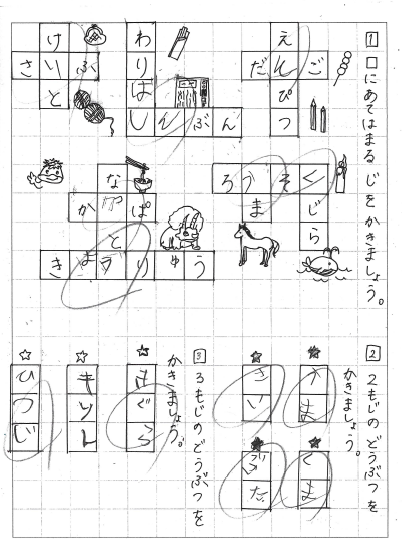 1 □にあてはまる じを かきましょう。
えんぴつ
だんご
わりばし
しんぶん
けいと
さいふ
ろうそく
くじら
うま
かっぱ
きょうりゅう
2 2もじの どうぶつを
かきましょう。
うま
くま
さい
ぶた
3 3もじの どうぶつを
かきましょう。
もぐら
きりん
ひつじ